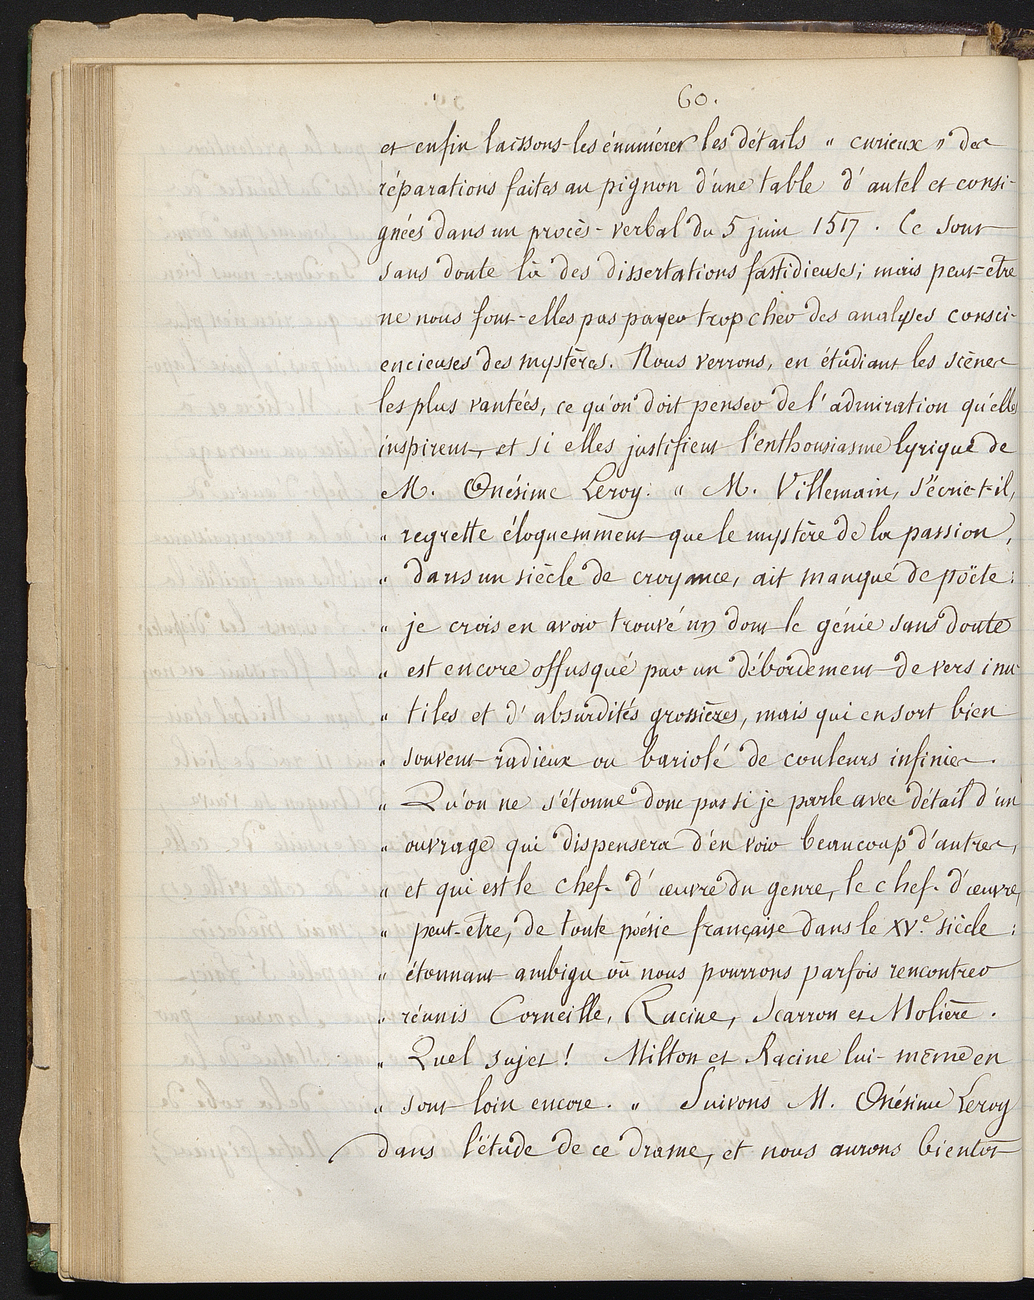 60.
et enfin laissons-les énumérer les détails " curieux " des
réparations faites au pignon d'une table d'autel et consi-
gnées dans un procès-verbal du 5 juin 1517. Ce sont
sans doute là des dissertations fastidieuses; mais peut-être
ne nous font-elles pas payer trop cher des analyses consci-
encieuses des mystères. Nous verrons, en étudiant les scènes
les plus vantées, ce qu'on doit penser de l'admiration qu'elles
inspirent, et si elles justifient l'enthousiasme lyrique de
M. Onésime Leroy: " M. Villemain, s'écrie-t-il,
" regrette éloquemment que le mystère de la passion,
" dans un siècle de croyance, ait manqué de poëte:
" je crois en avoir trouvé un dont le génie sans doute
" est encore offusqué par un débordement de vers inu
" tiles et d'absurdités grossières, mais qui en sort bien
" souvent radieux ou bariolé de couleurs infinies.
" Qu'on ne s'étonne donc pas si je parle avec détail d'un
" ouvrage qui dispensera d'en voir beaucoup d'autres,
" et qui est le chef-d'œuvre du genre, le chef-d'œuvre,
" peut-être, de toute poésie française dans le XVe siècle:
" étonnant ambigu où nous pourrons parfois rencontrer
" réunis Corneille, Racine, Scarron et Molière.
" Quel sujet! Milton et Racine lui-même en
" sont loin encore. " Suivons M. Onésime Leroy
dans l'étude de ce drame, et nous aurons bientôt